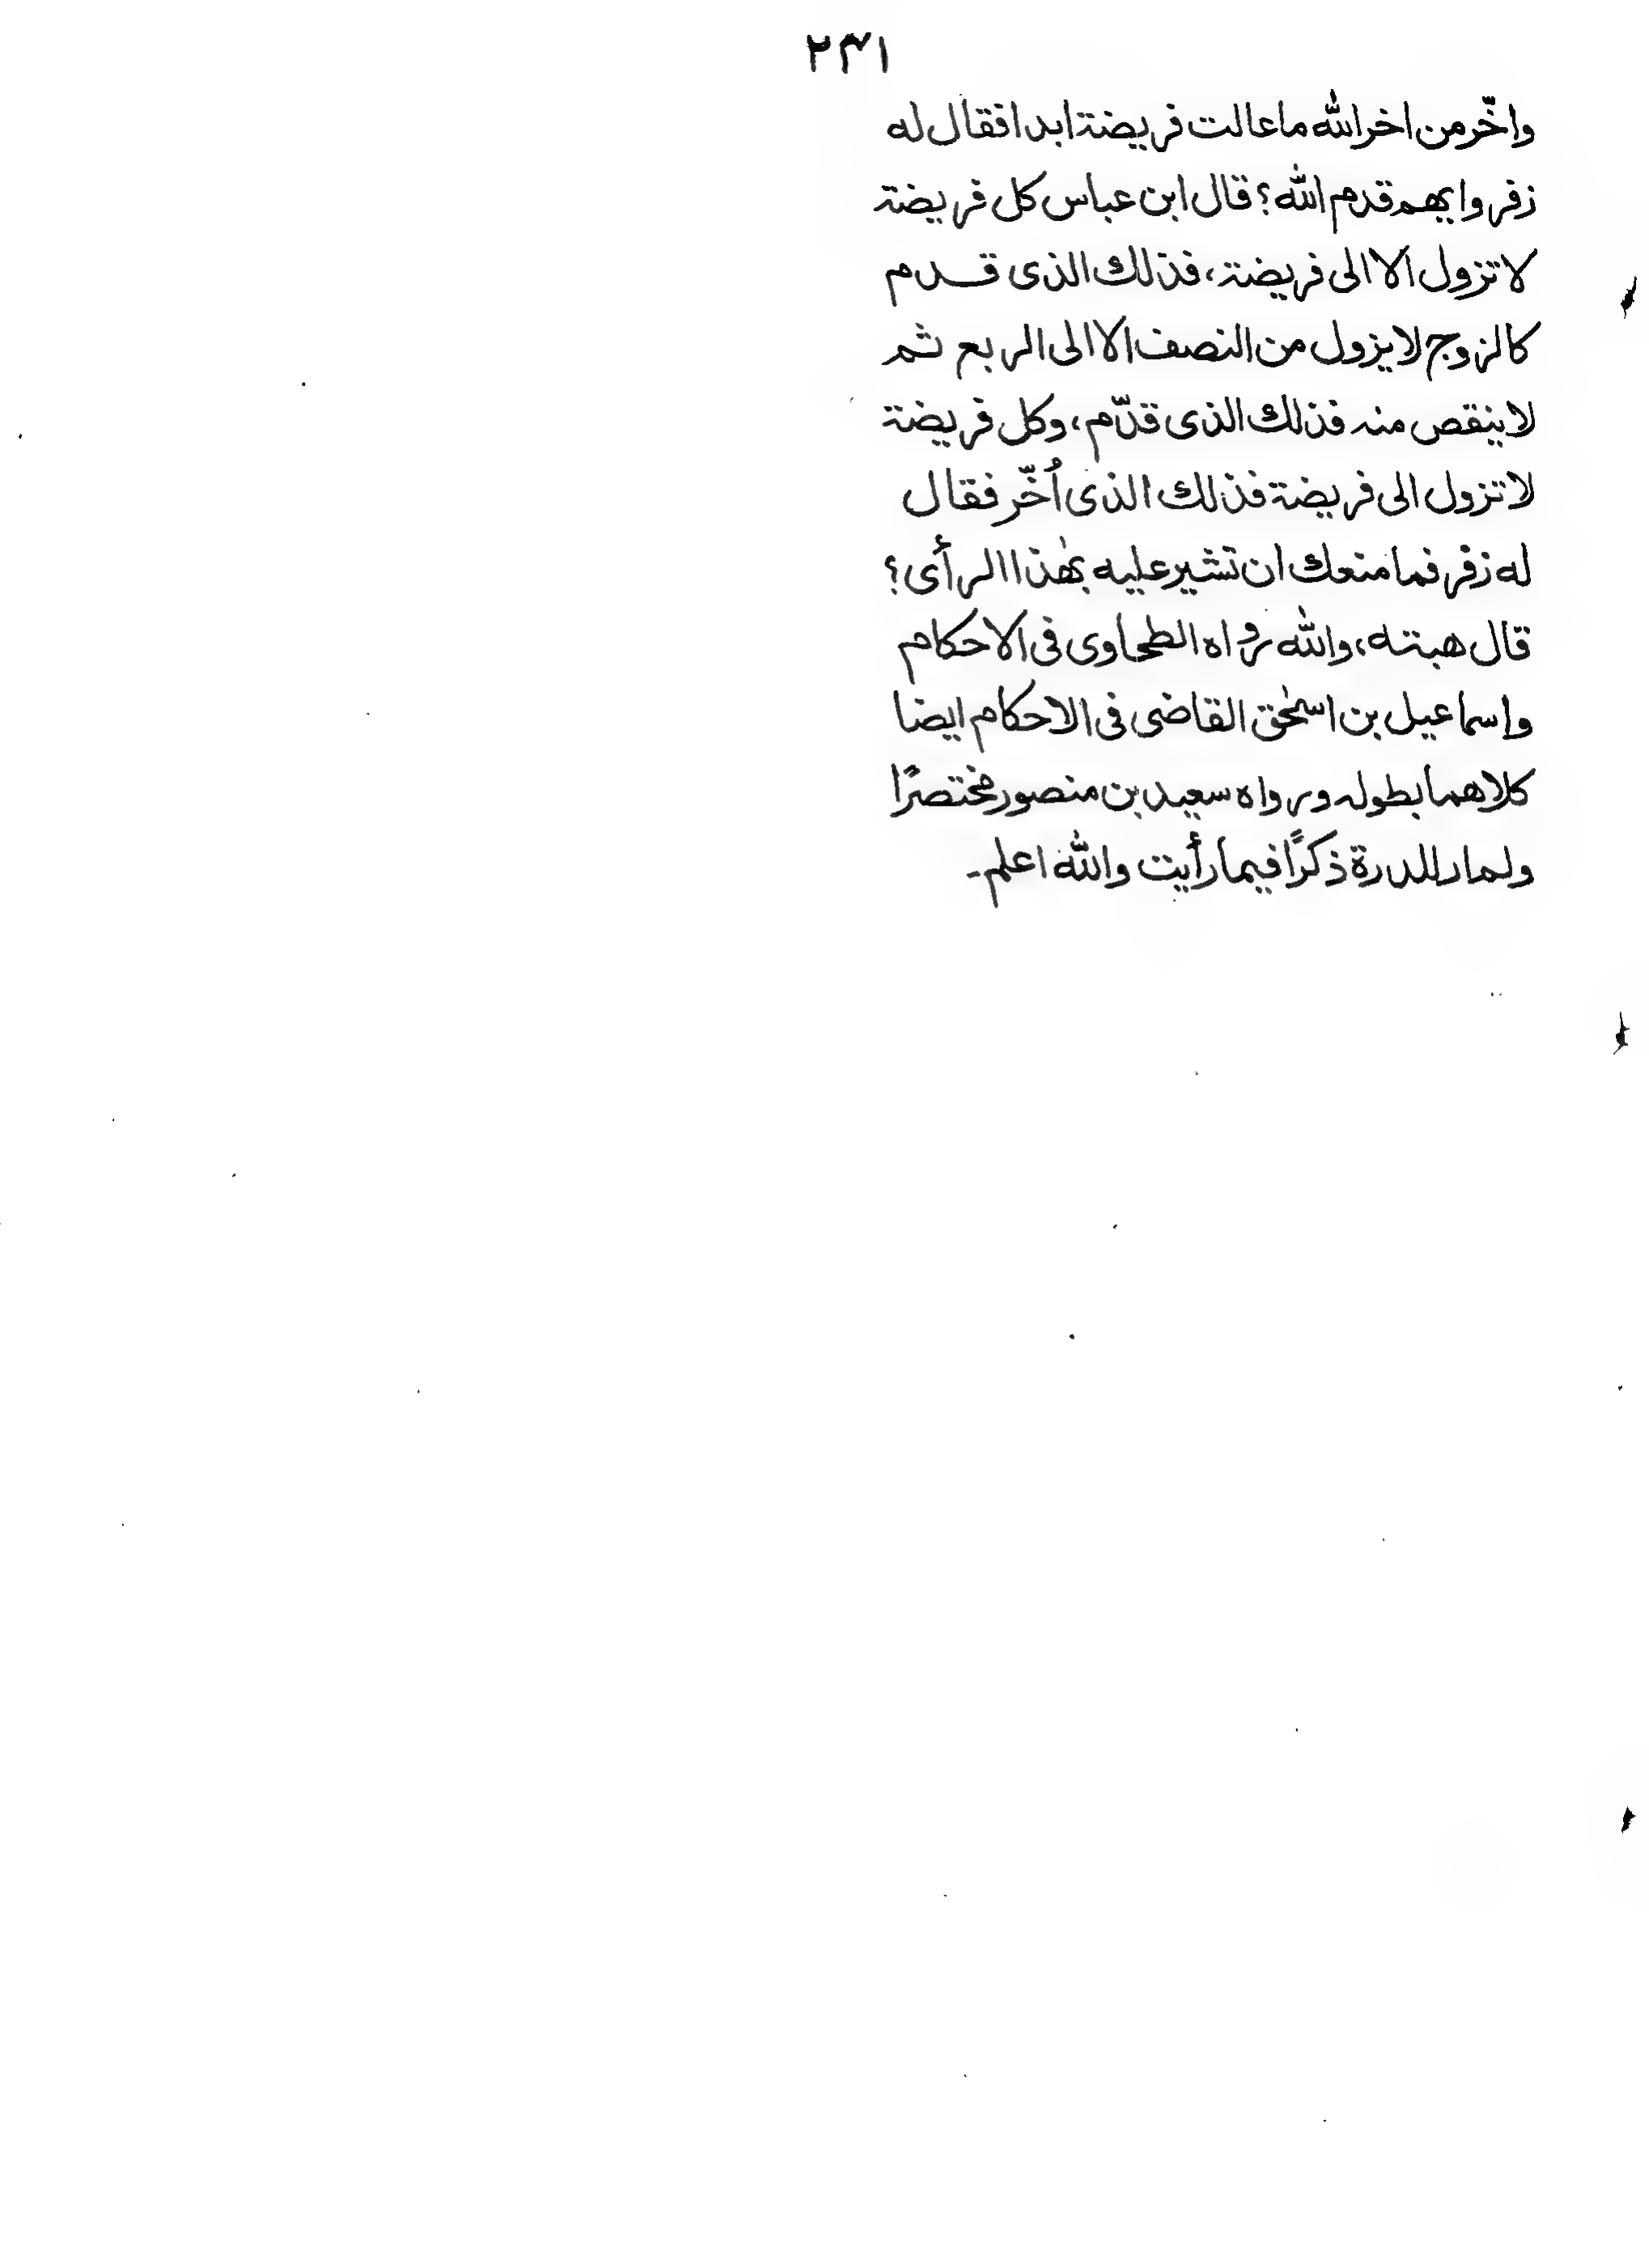 ۲۴۱
واخّر من اخر الله ما عالت فریضۃ ابدا فقال له
زفر و ایهم قدم الله؟ قال ابن عباس کل فریضۃ
لا تزول الا الی فریضۃ، فذلك الذی قـــدم
کالزوج لا یزول من النصف الا الی الربع ثم
لا ینقص منه فذلك الذی قدّم، وکل فریضۃ
لا تزول الی فریضۃ فذلك الذی اُخّر فقال
له زفر فما منعك ان تشیر علیه بهٰذا الرأی؟
قال هبته، والله رواه الطحاوی فی الاحکام
وإسماعیل بن اسحٰق القاضی فی الاحکام ایضا
کلاهما بطوله ورواه سعید بن منصور مختصرًا
ولم ار للدرة ذکرًا فیما رأیت والله اعلم۔